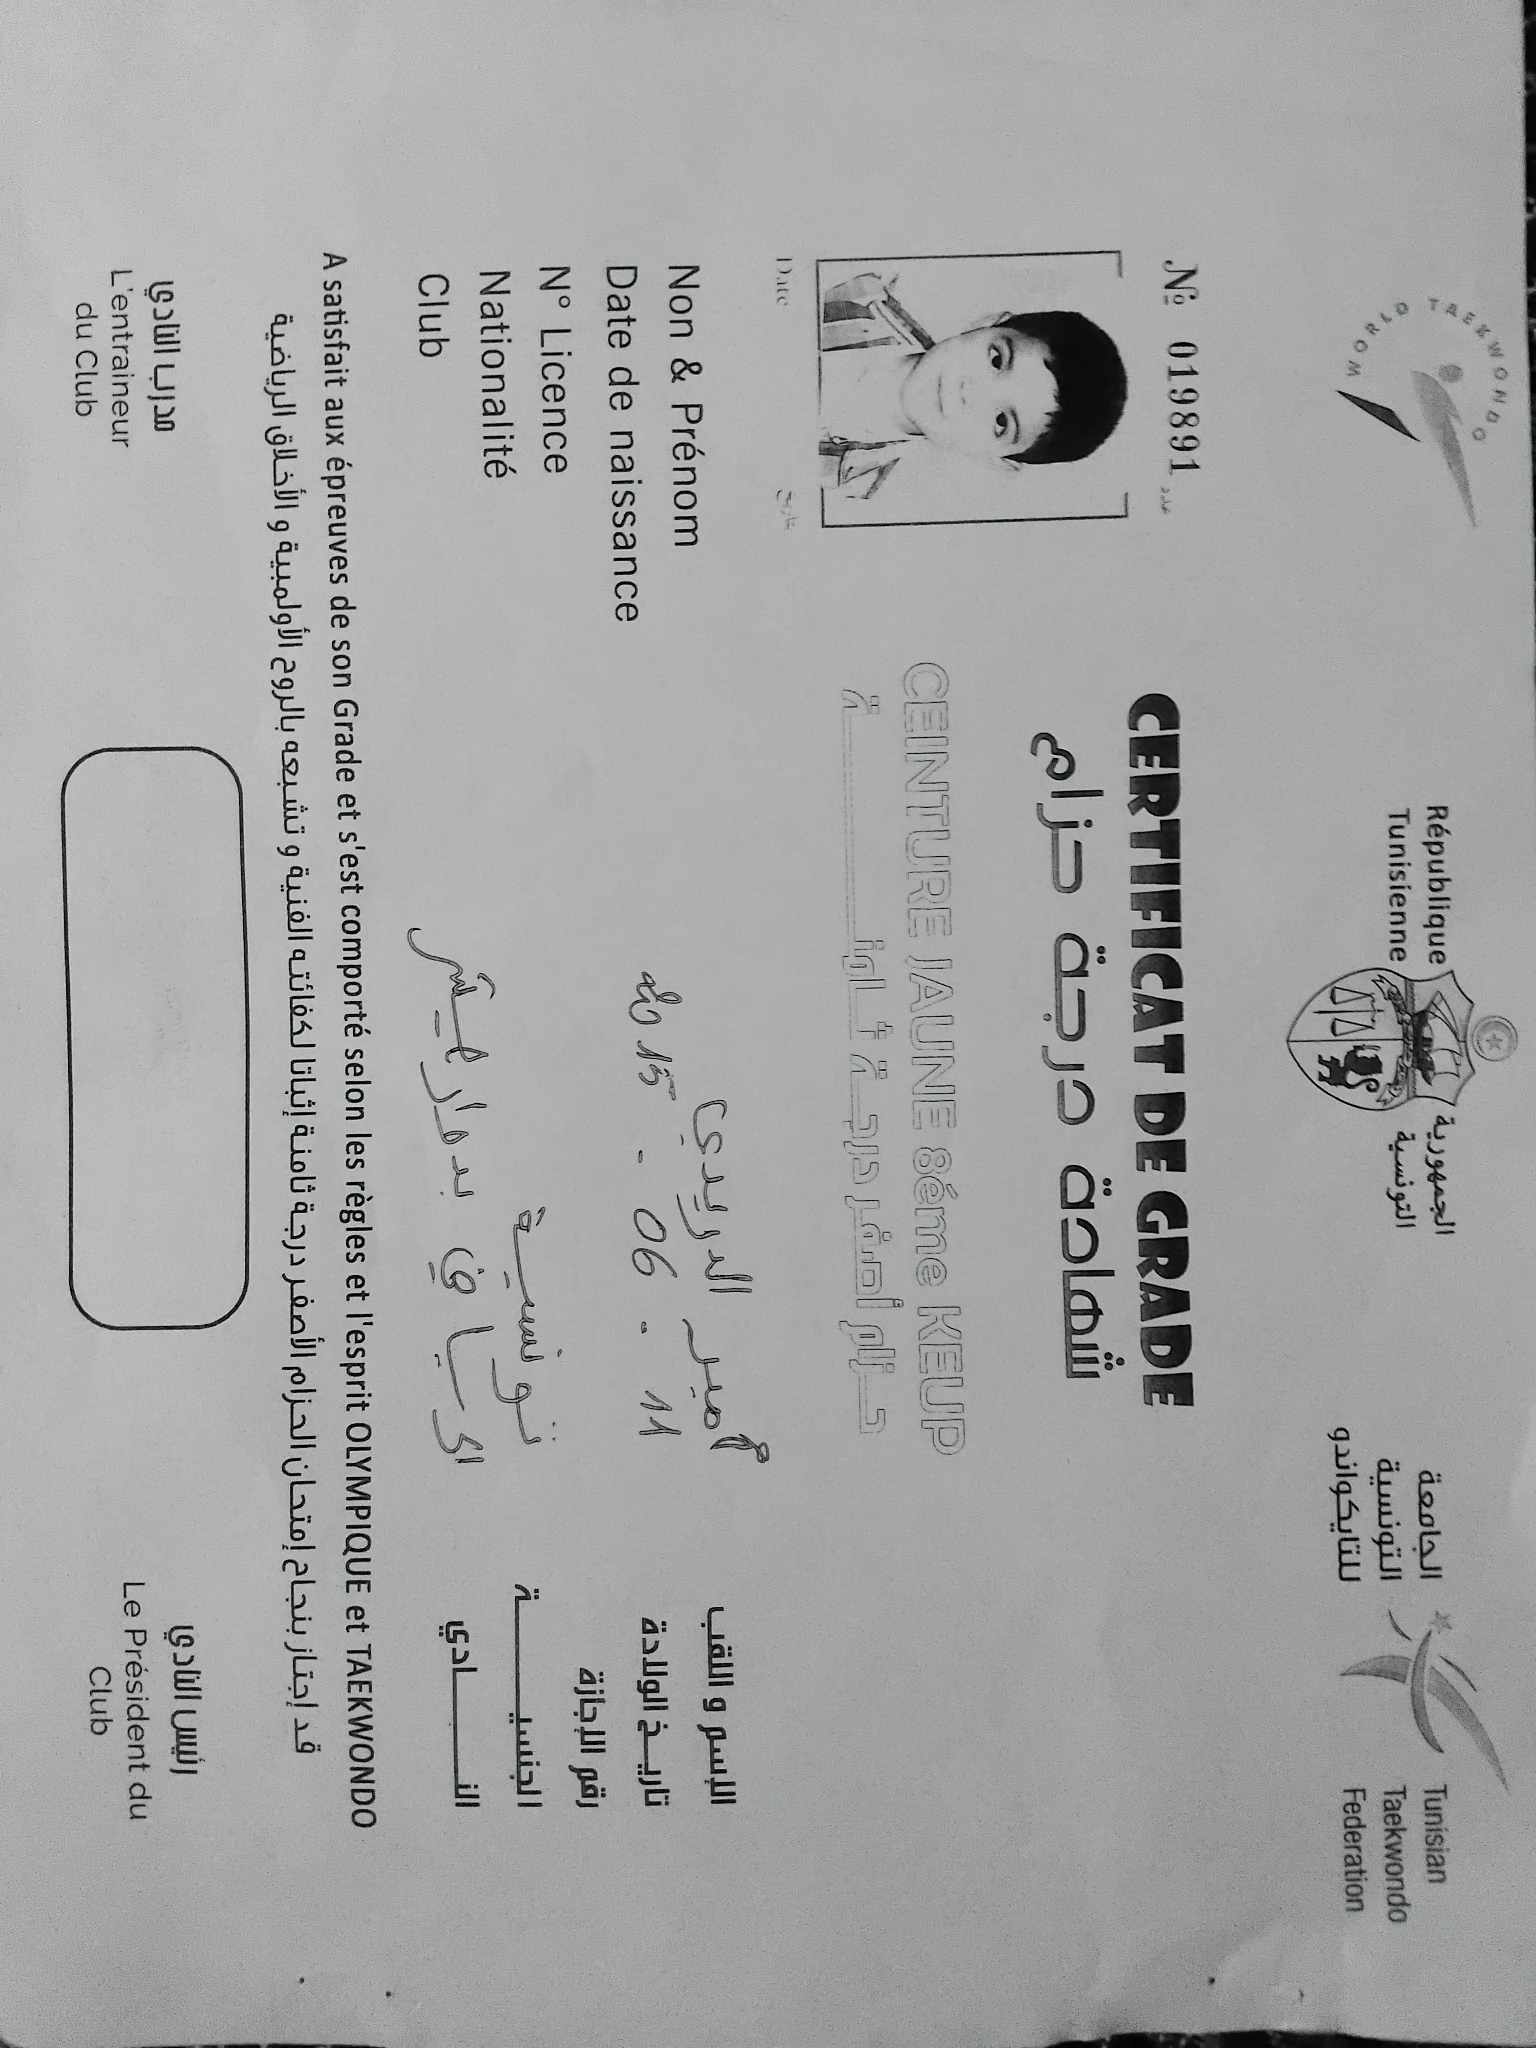 WORLD TAEKWONDO
République
Tunisienne
الجمهورية
التونسية
الجامعة
التونسية
للتايكواندو
Tunisian
Taekwondo
Federation
№ 019891 عدد
CERTIFICAT DE GRADE
شهادة درجة حزام
CEINTURE JAUNE 8éme KEUP
حـزام أصفـر درجـة ثـامنـــة
Date تاريخ
Non & Prénom أمير الدريدي الإسم و اللقب
Date de naissance 11 . 06 . 15 تاريـخ الولادة
N° Licence رقم الإجازة
Nationalité تونسية الجنسيـــة
Club بدار النـــادي
A satisfait aux épreuves de son Grade et s'est comporté selon les règles et l'esprit OLYMPIQUE et TAEKWONDO
قد إجتاز بنجاح إمتحان الحزام الأصفر درجة ثامنة إثباتا لكفائته الفنية و تشبعه بالروح الأولمبية و الأخلاق الرياضية
مدرب النادي
L'entraineur
du Club
رئيس النادي
Le Président du
Club